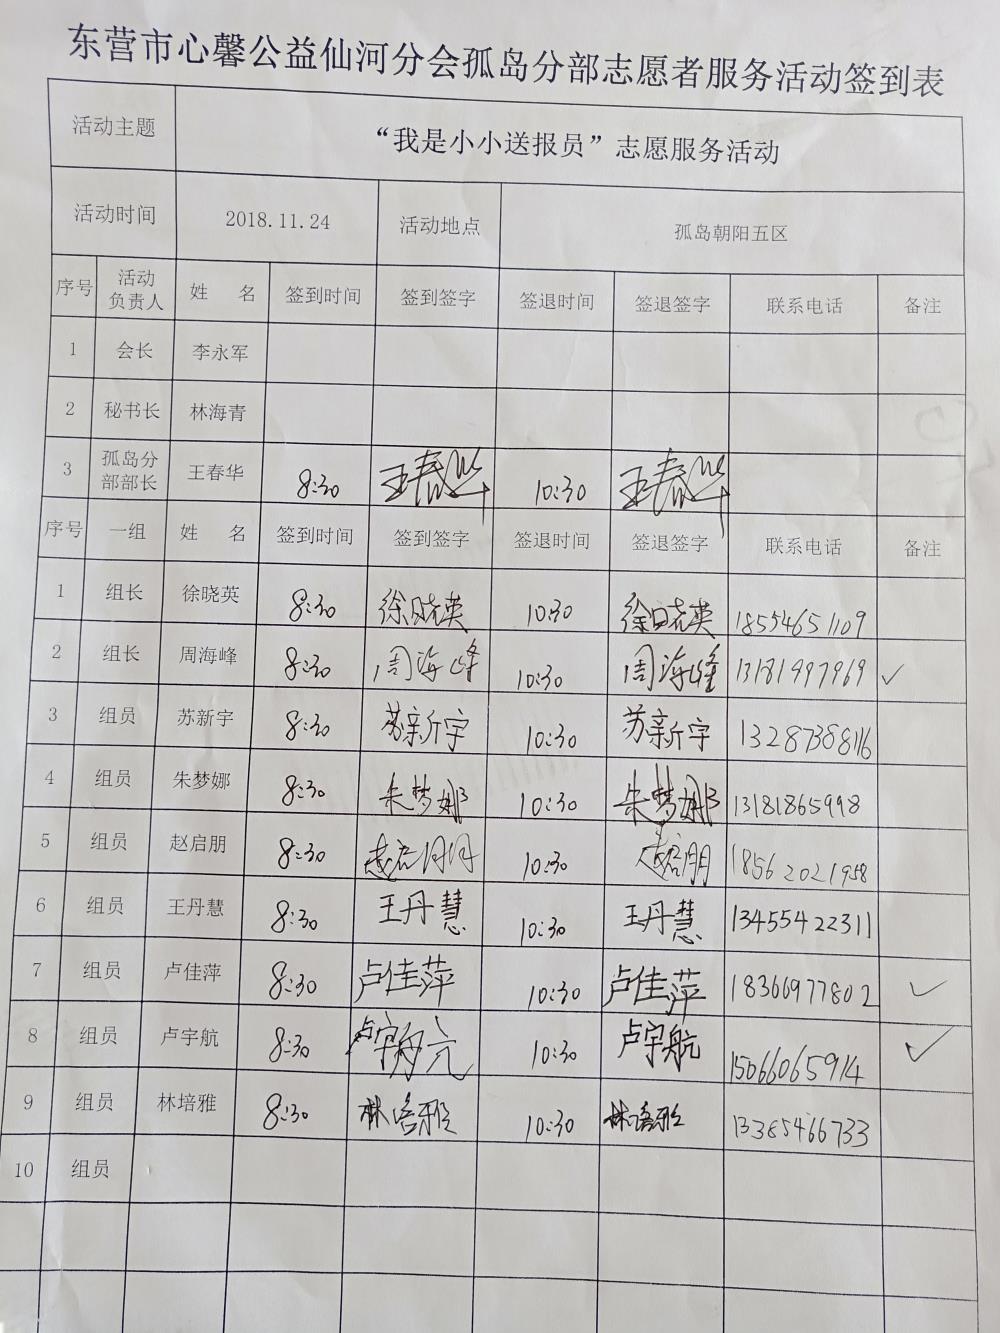 东营市心馨公益仙河分会孤岛分部志愿者服务活动签到表
活动主题 “我是小小送报员”志愿服务活动
活动时间 2018.11.24 活动地点 孤岛朝阳五区
序号 活动负责人 姓 名 签到时间 签到签字 签退时间 签退签字 联系电话 备注
1 会长 李永军
2 秘书长 林海青
3 孤岛分部部长 王春华 8:30 王春华 10:30 王春华
序号 一组 姓 名 签到时间 签到签字 签退时间 签退签字 联系电话 备注
1 组长 徐晓英 8:30 徐晓英 10:30 徐晓英 18554651109
2 组长 周海峰 8:30 周海峰 10:30 周海峰 13181997969 ✓
3 组员 苏新宇 8:30 苏新宇 10:30 苏新宇 13287388116
4 组员 朱梦娜 8:30 朱梦娜 10:30 朱梦娜 13181865998
5 组员 赵启朋 8:30 赵启朋 10:30 赵启朋 18562021958
6 组员 王丹慧 8:30 王丹慧 10:30 王丹慧 13455422311
7 组员 卢佳萍 8:30 卢佳萍 10:30 卢佳萍 18366977802 ✓
8 组员 卢宇航 8:30 卢宇航 10:30 卢宇航 15066065914 ✓
9 组员 林培雅 8:30 林培雅 10:30 林培雅 13385466733
10 组员